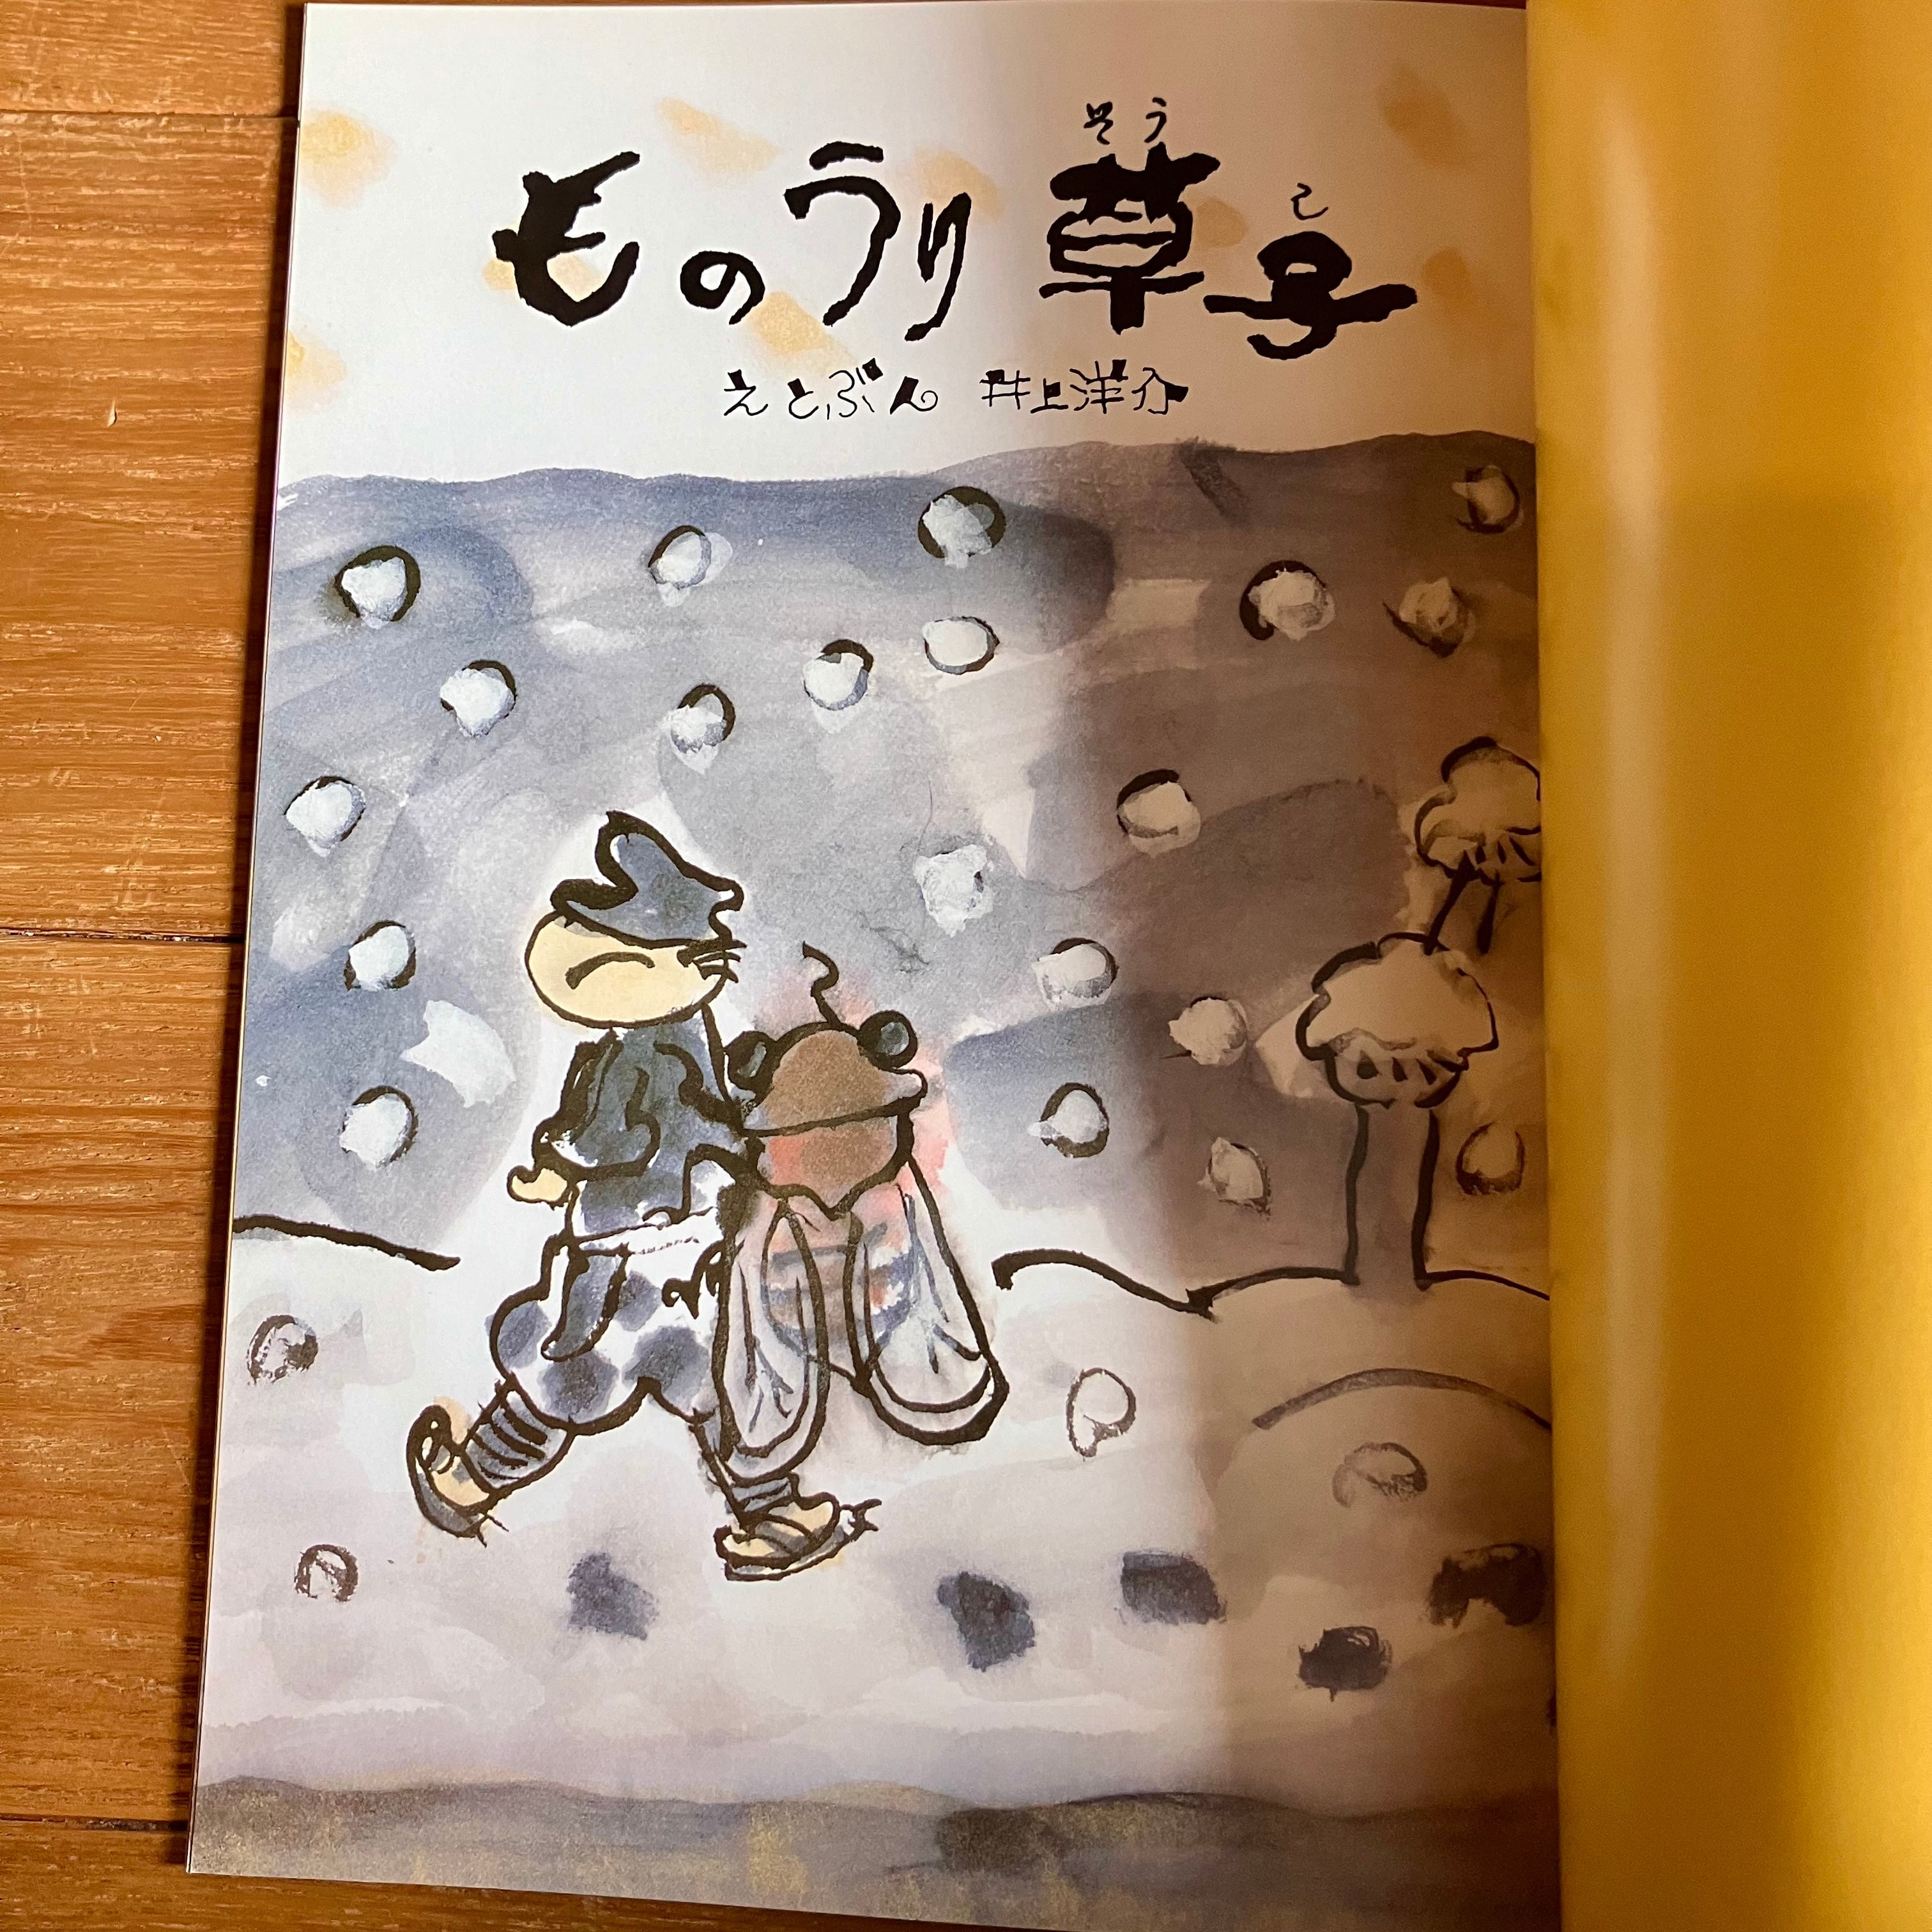 ものうり草子
そうし
えとぶん 井上洋介